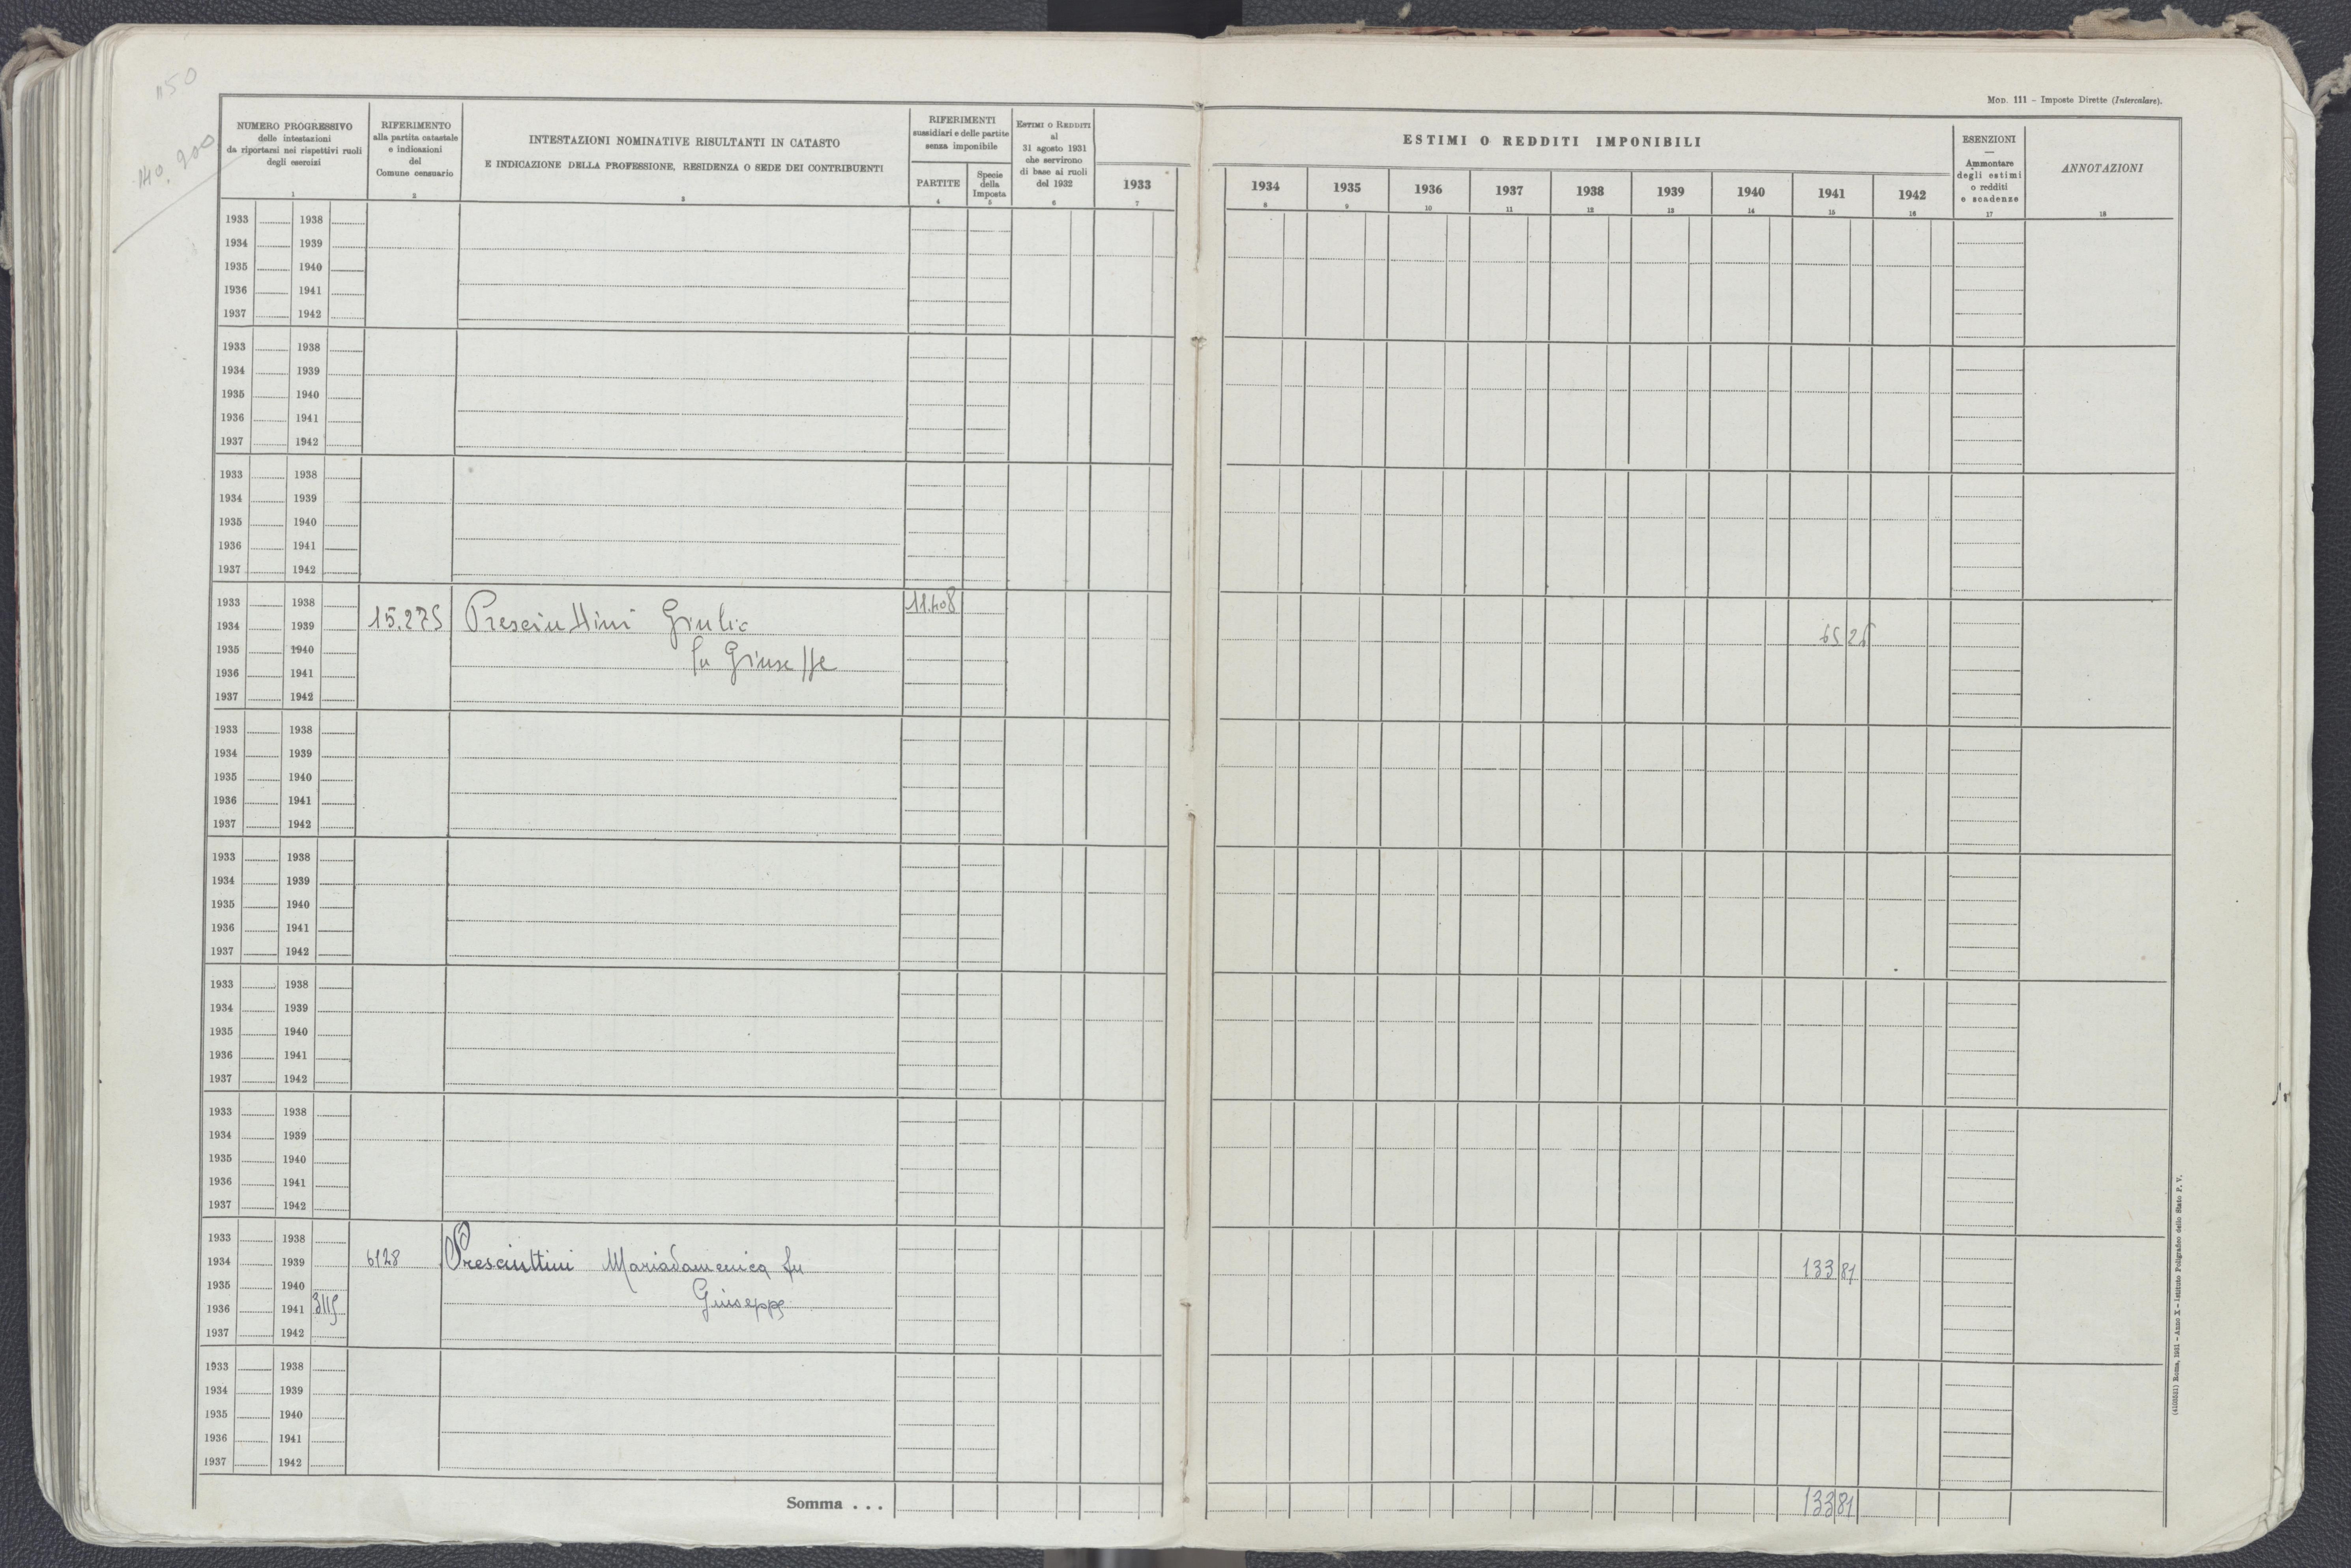 1150
140.900
MOD. 111 – Imposte Dirette (Intercalare).
NUMERO PROGRESSIVO
delle intestazioni
da riportarsi nei rispettivi ruoli
degli esercizi
1
RIFERIMENTO
alla partita catastale
e indicazioni
del
Comune censuario
2
INTESTAZIONI NOMINATIVE RISULTANTI IN CATASTO
E INDICAZIONE DELLA PROFESSIONE, RESIDENZA O SEDE DEI CONTRIBUENTI
3
RIFERIMENTI
sussidiari e delle partite
senza imponibile
PARTITE
4
Specie
della
Imposta
5
ESTIMI O REDDITI
al
31 agosto 1931
che servirono
di base ai ruoli
del 1932
6
1933
7
ESTIMI O REDDITI IMPONIBILI
1934 1935 1936 1937 1938 1939 1940 1941 1942
8 9 10 11 12 13 14 15 16
ESENZIONI
—
Ammontare
degli estimi
o redditi
e scadenze
17
ANNOTAZIONI
18
1933 1938
1934 1939
1935 1940
1936 1941
1937 1942
1933 1938
1934 1939
1935 1940
1936 1941
1937 1942
1933 1938
1934 1939
1935 1940
1936 1941
1937 1942
1933 1938 11.408
1934 1939 15.275 Presciuttini Giulia 65 26
1935 1940 fu Giuseppe
1936 1941
1937 1942
1933 1938
1934 1939
1935 1940
1936 1941
1937 1942
1933 1938
1934 1939
1935 1940
1936 1941
1937 1942
1933 1938
1934 1939
1935 1940
1936 1941
1937 1942
1933 1938
1934 1939
1935 1940
1936 1941
1937 1942
1933 1938
1934 1939 6128 Presciuttini Mariadomenica fu 133 81
1935 1940
1936 1941 3115 Giuseppe
1937 1942
1933 1938
1934 1939
1935 1940
1936 1941
1937 1942
Somma . . . 133 81
(4103531) Roma, 1931 – Anno X – Istituto Poligrafico dello Stato P. V.